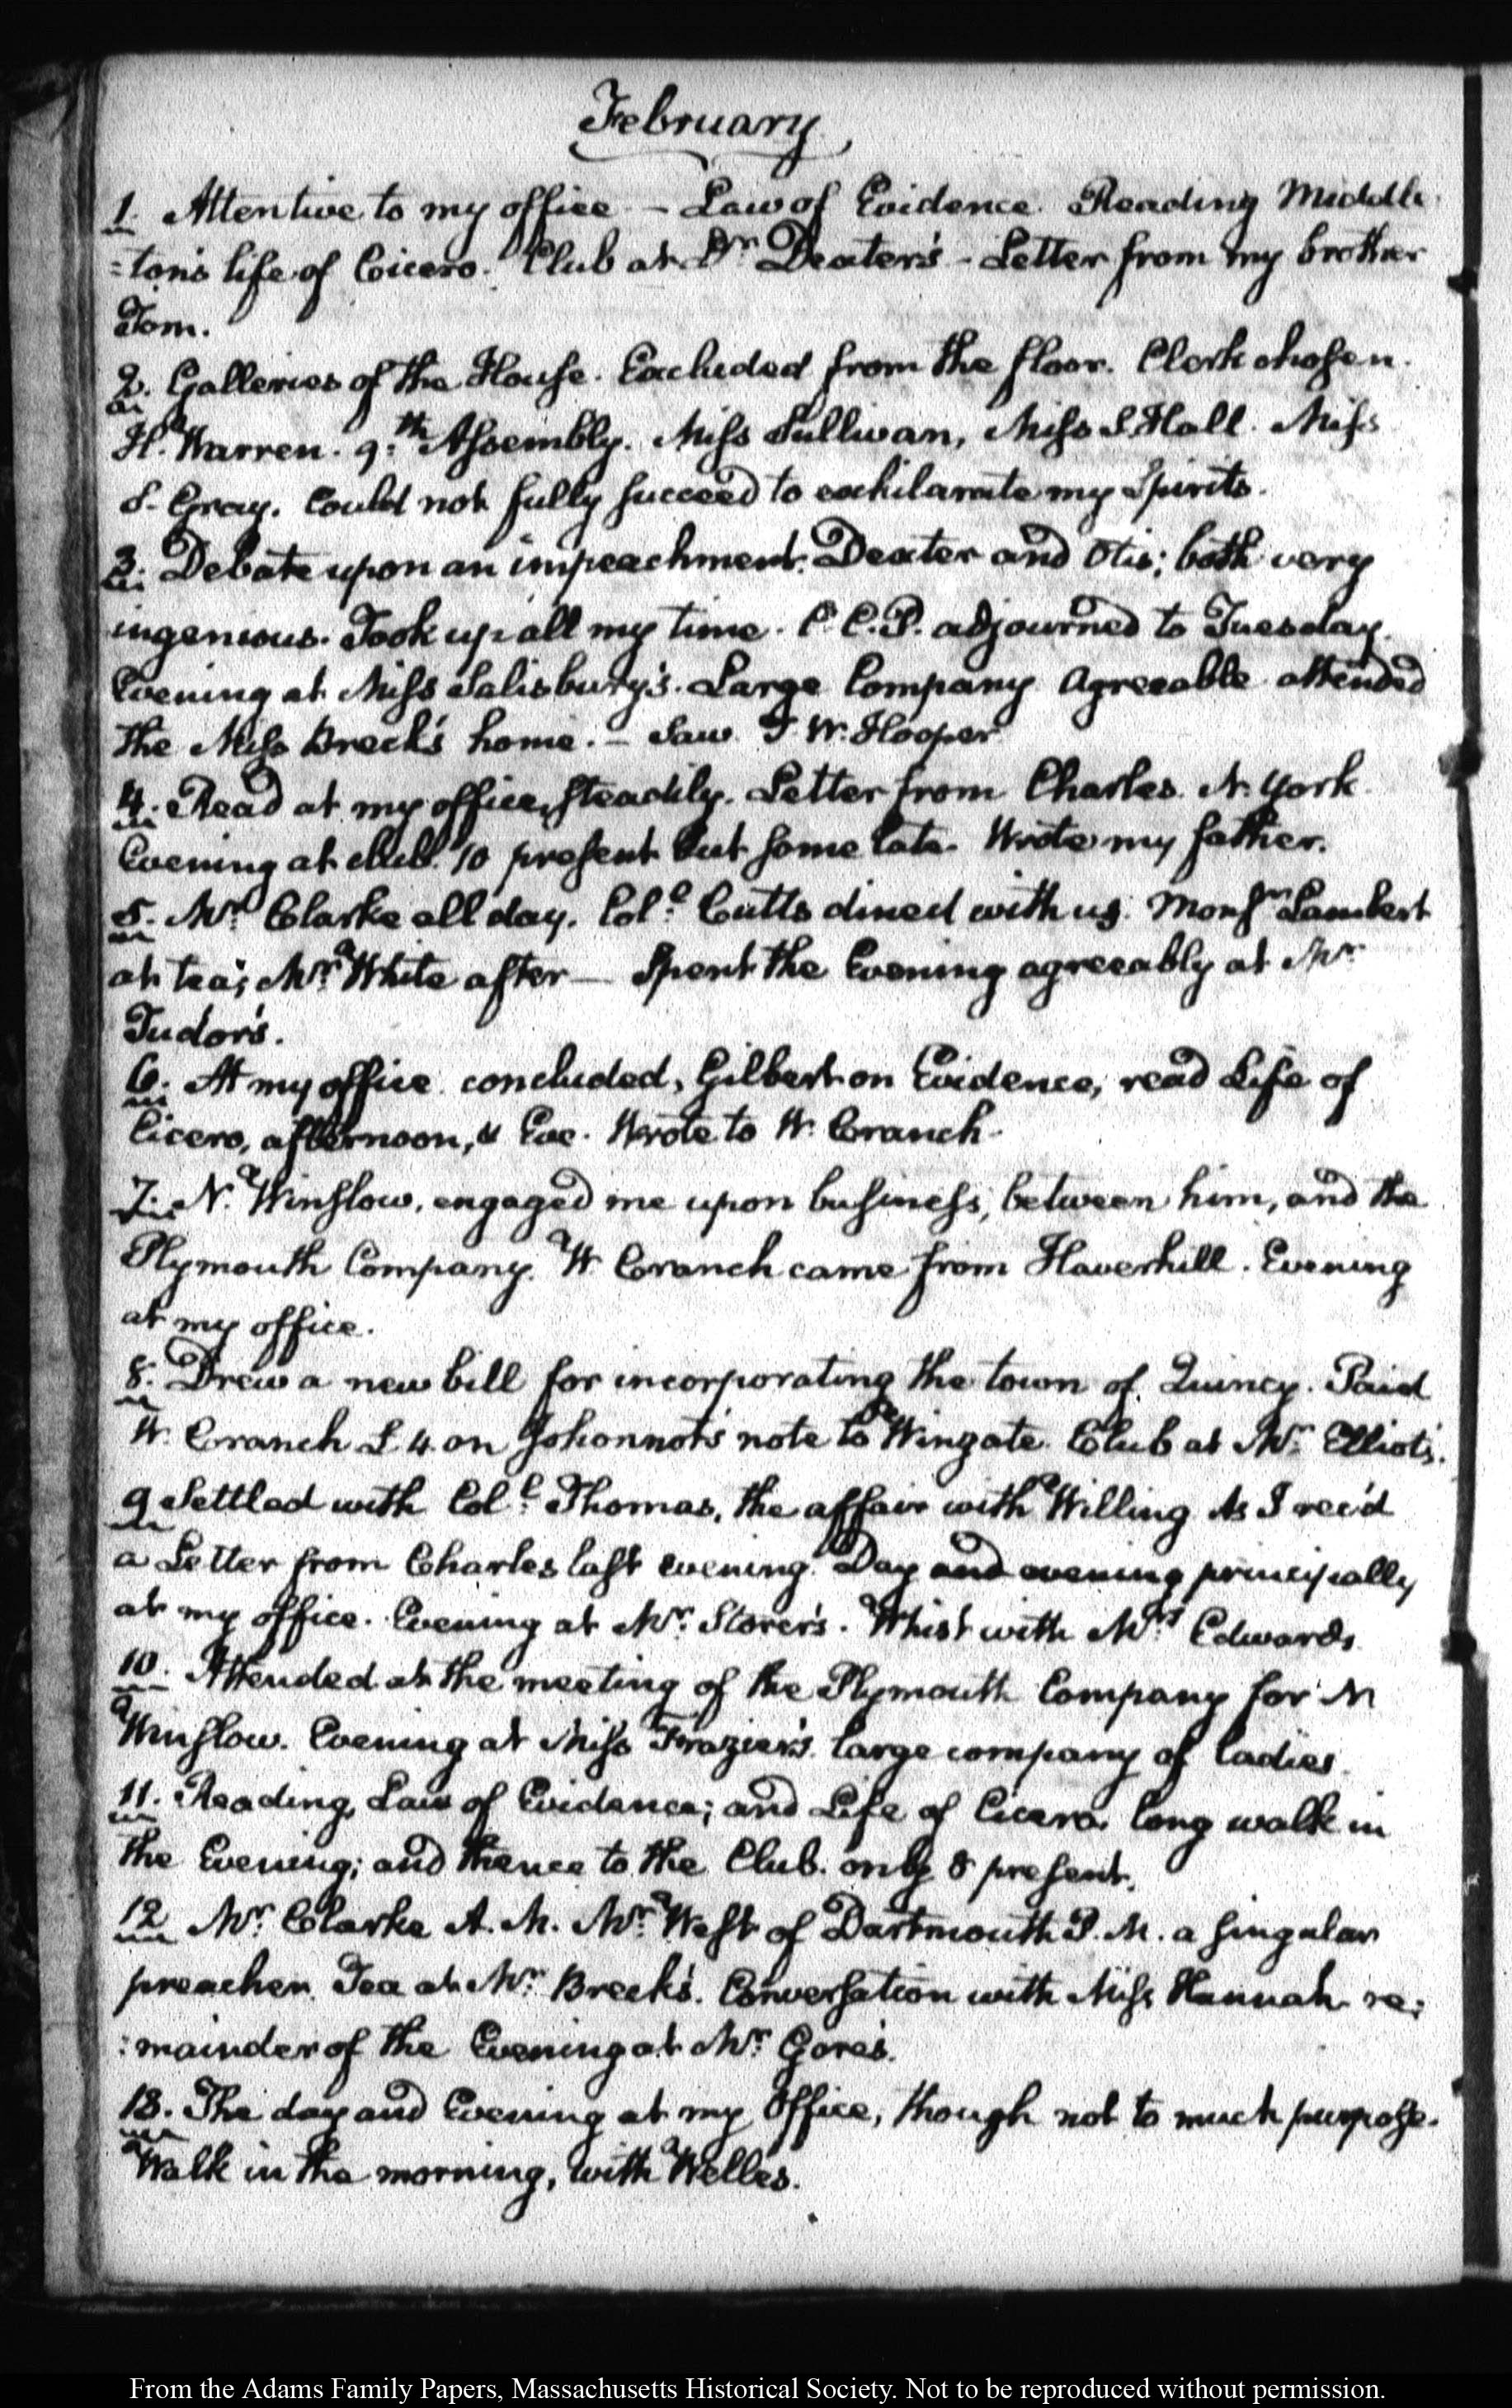 February
1. Attentive to my office — Law of Evidence. Reading Middle
=ton's life of Cicero. Club at Dr. Dexter's – Letter from my brother
Tom.
2. Galleries of the House. Excluded from the floor. Clerk chosen.
H. Warren. 9:th Assembly. Miss Sullivan, Miss S. Hall. Miss
S. Gray. Could not fully succeed to exhilarate my Spirits.
3. Debate upon an impeachment. Dexter and Otis; both very
ingenious. Took up all my time. C. C. P. adjourned to Tuesday.
Evening at Miss Salisbury's. Large Company. Agreeable attended
the Miss Breck's home. – Saw T W. Hooper
4. Read at my office, steadily. Letter from Charles. N. York.
Evening at club. 10 present but some late. Wrote my father.
5. Mr. Clarke all day. Col.o Cutts dined with us. Monsr. Lambert
at tea; Mr. White after — Spent the Evening agreeably at Mr
Tudor's.
6. At my office. concluded, Gilbert on Evidence, read Life of
Cicero, afternoon, & Eve. Wrote to W. Cranch.
7. N. Winslow, engaged me upon business, between him, and the
Plymouth Company. W. Cranch came from Haverhill. Evening
at my office.
8. Drew a new bill for incorporating the town of Quincy. Paid
W. Cranch £ 4. on Johonnot's note to Wingate. Club at Mr. Elliot's.
9 Settled with Col.l Thomas, the affair with Willing. As I rec'd
a Letter from Charles last evening. Day and evening principally
at my office. Evening at Mr. Storer's. Whist with Mrs. Edwards
10. Attended at the meeting of the Plymouth Company for N
Winslow. Evening at Miss Frazier's. large company of ladies.
11. Reading, Law of Evidence; and Life of Cicero. long walk in
the Evening; and thence to the Club. only 8 present.
12 Mr. Clarke A. M. Mr. West of Dartmouth P. M. a singular
preacher. Tea at Mr. Breck's. Conversation with Miss Hannah. re:
:mainder of the Evening at Mr. Gore's.
13. The day and Evening at my Office, though not to much purpose.
Walk in the morning, with Welles.
From the Adams Family Papers, Massachusetts Historical Society. Not to be reproduced without permission.